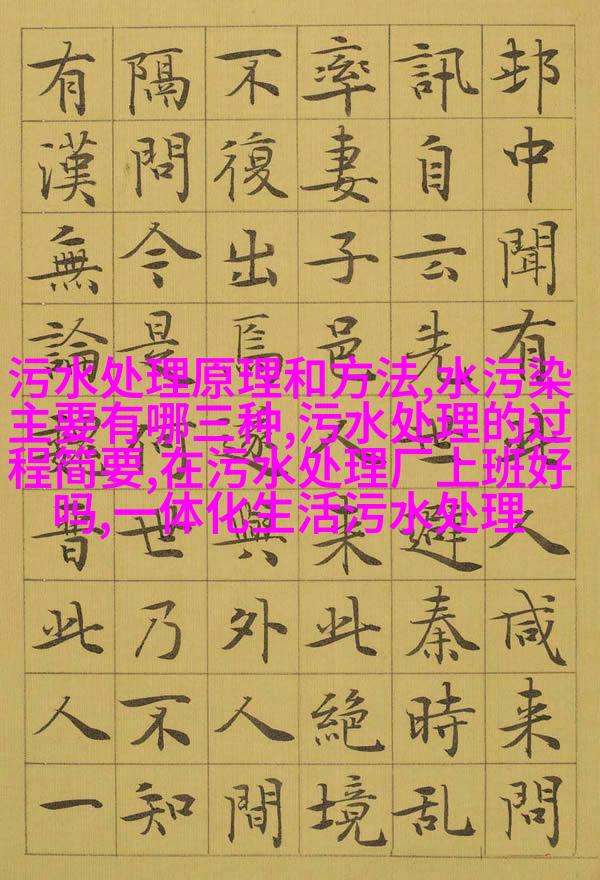 邨中聞有此人咸来問
訊自云先世避秦時亂
率妻子邑人来此絕境
不復出焉遂與外人間
隔問今是何世乃不知
有漢無論魏晉此人一
污水处理原理和方法,水污染
主要有哪三种,污水处理的过
程简要,在污水处理厂上班好
吗,一体化生活污水处理